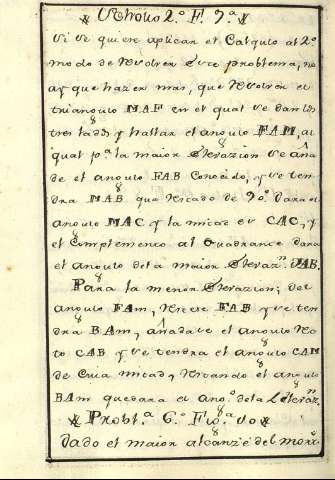 Methodo 2.º F. 9.ª
Si se quiere aplicar el Calculo al 2.º
modo de resolver este problema, no
ay que hazer mas, que resolver el
triangulo MAF en el qual se dan los
tres lados y hallar el angulo FAM, al
qual p.ª la maior elevazion se aña
de el angulo FAB Conocido, y se ten
dra MAB que restado de 90.º dara el
angulo MAC y la mitad es CAC, y
el Complemento al quadrante dara
el angulo de la maior elevaz.n JAB.
Para la menor elevazion; del
angulo FAm, restese FAB y se ten
dra BAm, añadase el angulo rec
to CAB y se tendra el angulo CAM
de cuia mitad, restando el angulo
BAm quedara el ang.º de la elevaz.n
Probl.ª 6.º Fig.ª
Dado el maior alcanze del mor.º